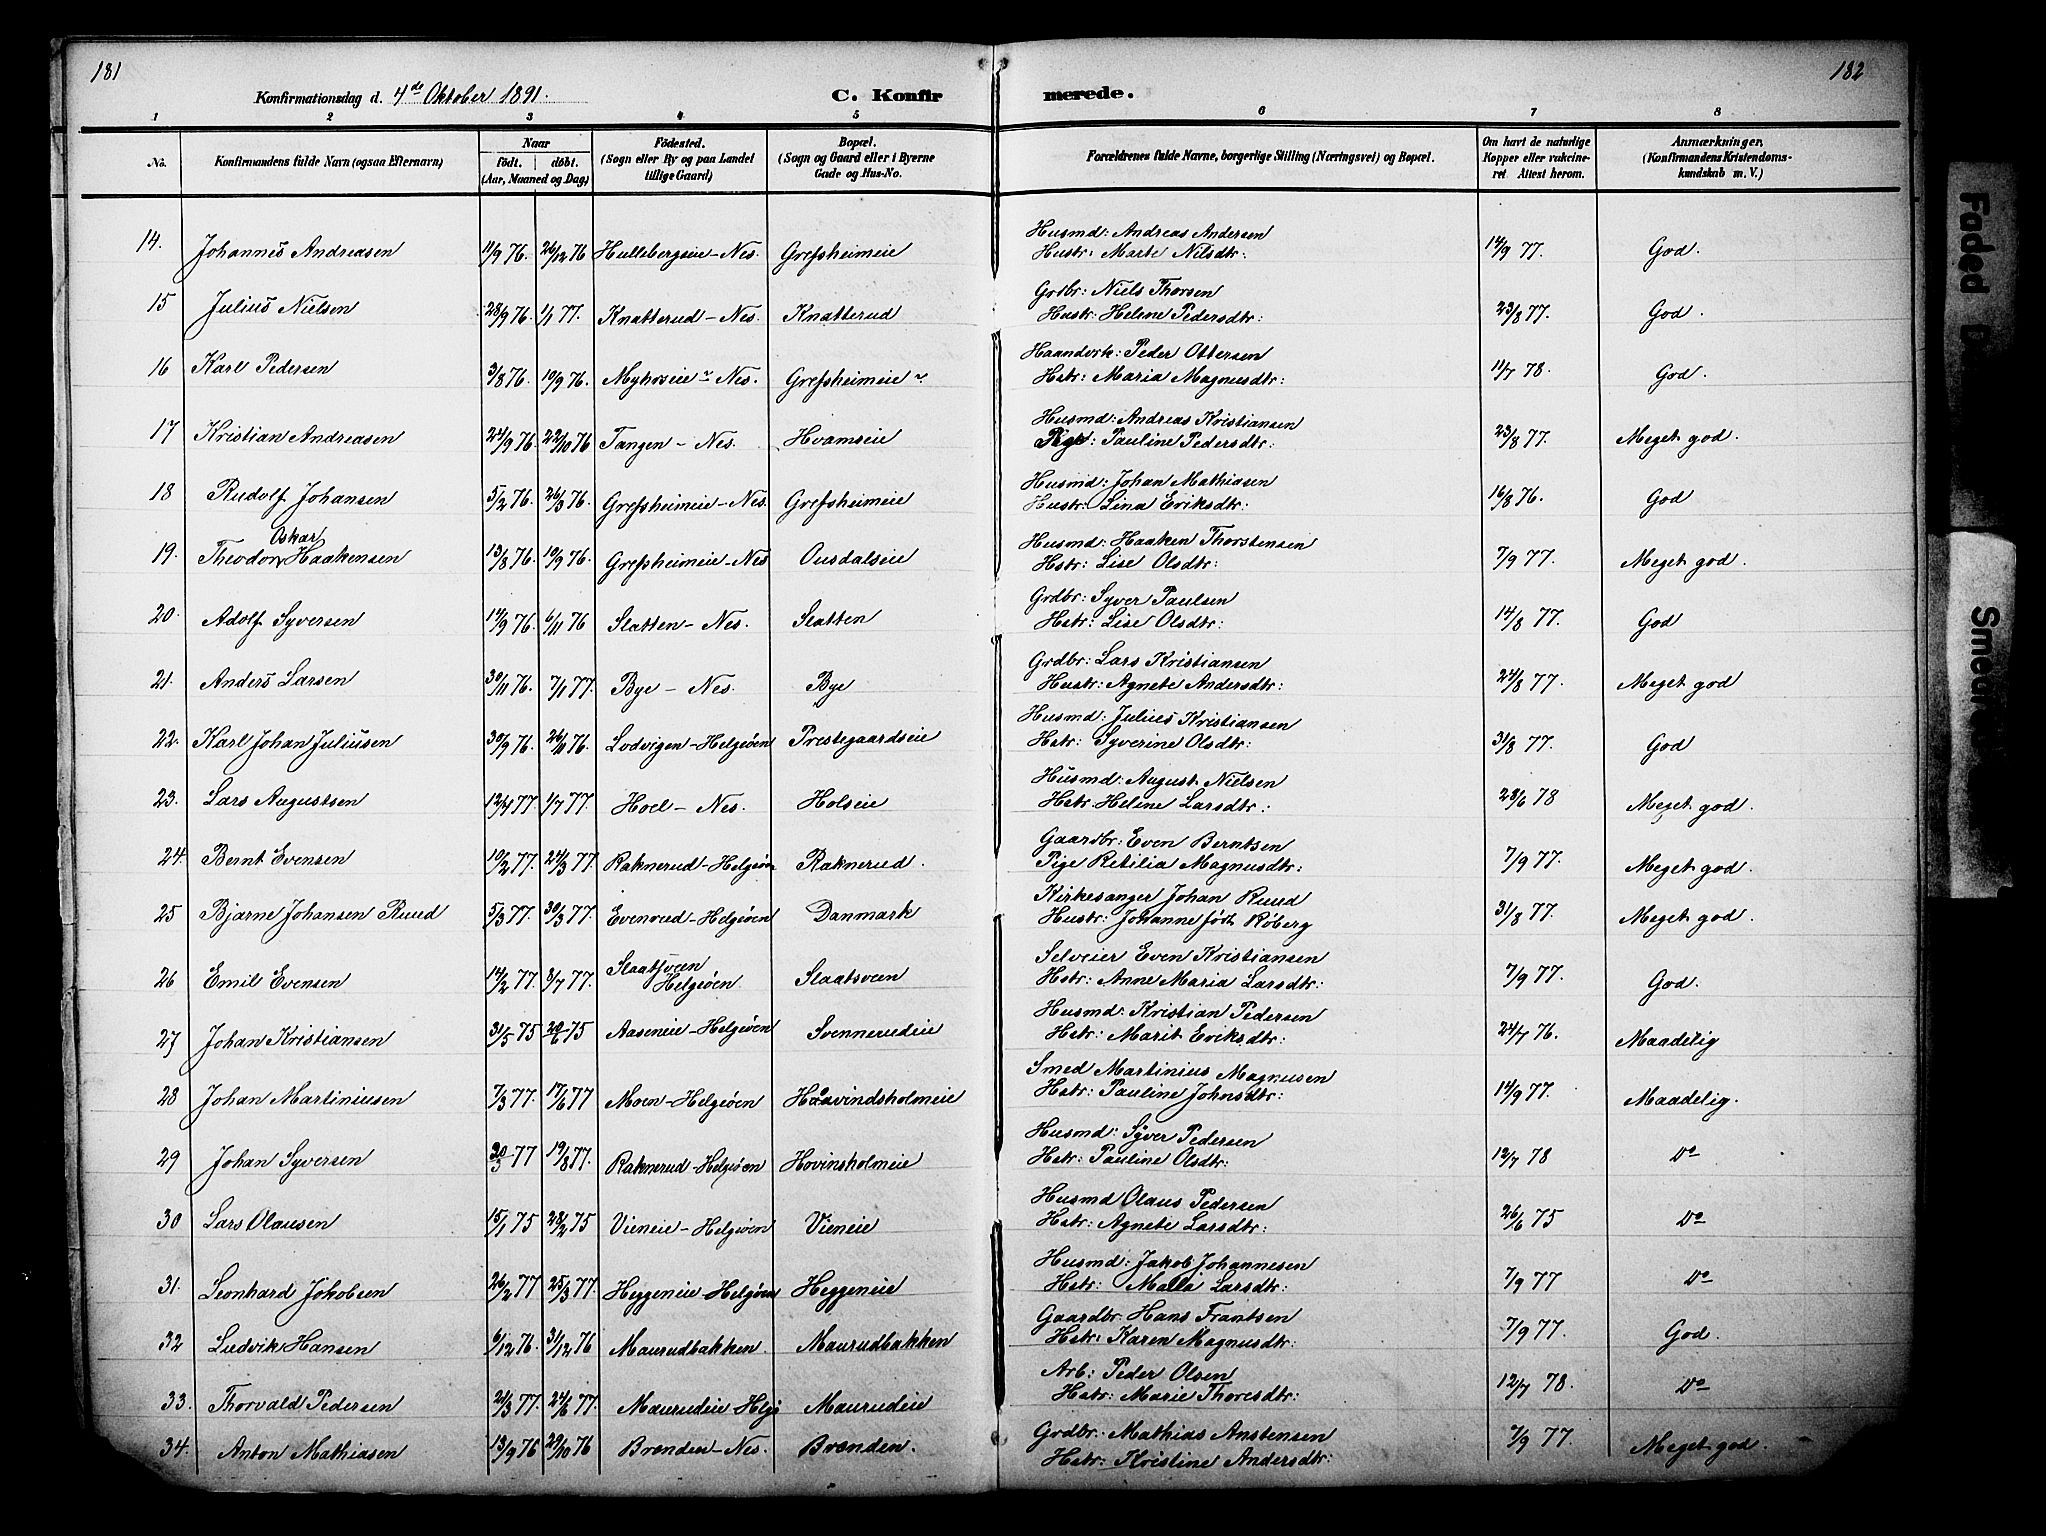 181
182
Konfirmationsdag d. 4de Oktober 1891.
C. Konfirmerede.
1 2 3 4 5 6 7 8
No. Konfirmandens fulde Navn (ogsaa Efternavn) Naar født. døbt. (Aar, Maaned og Dag) Fødested. (Sogn eller By og paa Landet tillige Gaard) Bopæl. (Sogn og Gaard eller i Byerne Gade og Hus-No. Forældrenes fulde Navne, borgerlige Stilling (Næringsvei) og Bopæl. Om havt de naturlige Kopper eller vakcineret Attest herom. Anmærkninger, (Konfirmandens Kristendomskundskab m. V.)
14. Johannes Andreasen 11/9 76. 26/12 76 Hullebergseie - Nes. Grefsheimeie Husmd: Andreas Andersen 14/9 77. God.
Hustr: Marte Nilsdtr:
15 Julius Nielsen 28/9 76. 1/1 77. Knatterud - Nes. Knatterud Grdbr: Niels Thorsen 23/8 77. God.
Hustr: Helene Pedersdtr:
16 Karl Pedersen 3/8 76. 10/9 76. Myhrseie - Nes. Grefsheimeie Haandvrk: Peder Ottersen 11/7 78. God.
Hstr: Maria Magnusdtr:
17 Kristian Andreasen 24/9 76. 22/10 76 Tangen - Nes. Hvamseie Husmd: Andreas Kristiansen 23/8 77. Meget god.
Pige: Pauline Pedersdtr:
18 Rudolf Johansen 5/2 76. 26/3 76. Grefsheimeie - Nes. Grefsheimeie Husmd: Johan Mathiasen 16/8 76. God
Hustr: Lina Eriksdtr:
19. Theodor Oskar Haakensen 13/8 76. 10/9 76. Grefsheimeie - Nes Ousdalseie Husmd: Haaken Thorstensen 7/9 77. Meget god.
Hstr: Lise Olsdtr:
20. Adolf Syversen 14/9 76. 6/11 76 Slatten - Nes. Slatten Grdbr: Syver Paulsen 14/8 77. God
Hstr: Lise Olsdtr:
21. Anders Larsen 30/11 76. 7/1 77. Bye - Nes. Bye Grdbr: Lars Kristiansen 24/8 77. Meget god
Hustr: Agnete Andersdtr:
22. Karl Johan Juliusen 30/9 76. 26/11 76. Lodvigen - Helgøen Prestegaardseie Husmd: Julius Kristiansen 31/8 77. God
Hstr: Syverine Olsdtr:
23. Lars Augustsen 12/4 77. 1/7 77. Hoel - Nes. Holseie Husmd: August Nielsen 28/6 78 Meget god.
Hstr. Heline Larsdtr:
24. Bernt Evensen 10/2 77. 24/3 77. Raknerud - Helgøen Raknerud. Gaardbr: Even Berntsen 7/9 77. Meget god.
Pige Retilia Magnusdtr:
25 Bjarne Johansen Ruud 5/3 77. 30/3 77. Evenrud - Helgøen Danmark Kirkesanger Johan Ruud 31/8 77. Meget god.
Hustr: Johanne født Røberg
26 Emil Evensen 14/2 77. 8/7 77. Slaatsveen Helgøen. Slaatsveen Selveier Even Kristiansen 7/9 77. God.
Hstr: Anne Maria Larsdtr:
27 Johan Kristiansen 31/5 75 20/6 75 Aaseneie - Helgøen Svennerudeie Husmd: Kristian Pedersen 24/7 76. Maadelig
Hstr: Marit Eriksdtr:
28 Johan Martiniusen 7/3 77. 17/6 77 Moen - Helgøen Haavindsholmeie Smed Martinius Magnusen 14/9 77. Maadelig.
Hstr: Pauline Johnsdtr:
29 Johan Syversen 20/3 77 19/8 77. Raknerud - Helgøen Hovinsholmeie Husmd: Syver Pedersen 12/7 78 Do
Hstr: Pauline Olsdtr:
30 Lars Olausen 15/1 75 28/2 75 Vieneie - Helgøen Vieneie Husmd Olaus Pedersen 26/6 75 Do
Hstr: Agnete Larsdtr:
31. Leonhard Jakobsen 26/2 77 25/3 77. Heggeneie - Helgøen Heggeneie Husmd: Jakob Johannesen 7/9 77 Do
Hstr: Malla Larsdtr:
32 Ludvik Hansen 6/12 76. 31/12 76 Maurudbakken. Maurudbakken Gaardbr: Hans Frantsen 7/9 77. God.
Hstr: Karen Magnusdtr:
33. Thorvald Pedersen 21/3 77. 24/6 77. Maurudeie - Helgø Maurudeie Arb: Peder Olsen 12/7 78. Do
Hstr: Marie Thoresdtr:
34. Anton Mathiasen 13/9 76 29/10 76 Brenden - Nes. Brenden. Grdbr: Mathias Anstensen 7/9 77 Meget god.
Hstr: Kristine Andersdtr:
Faded